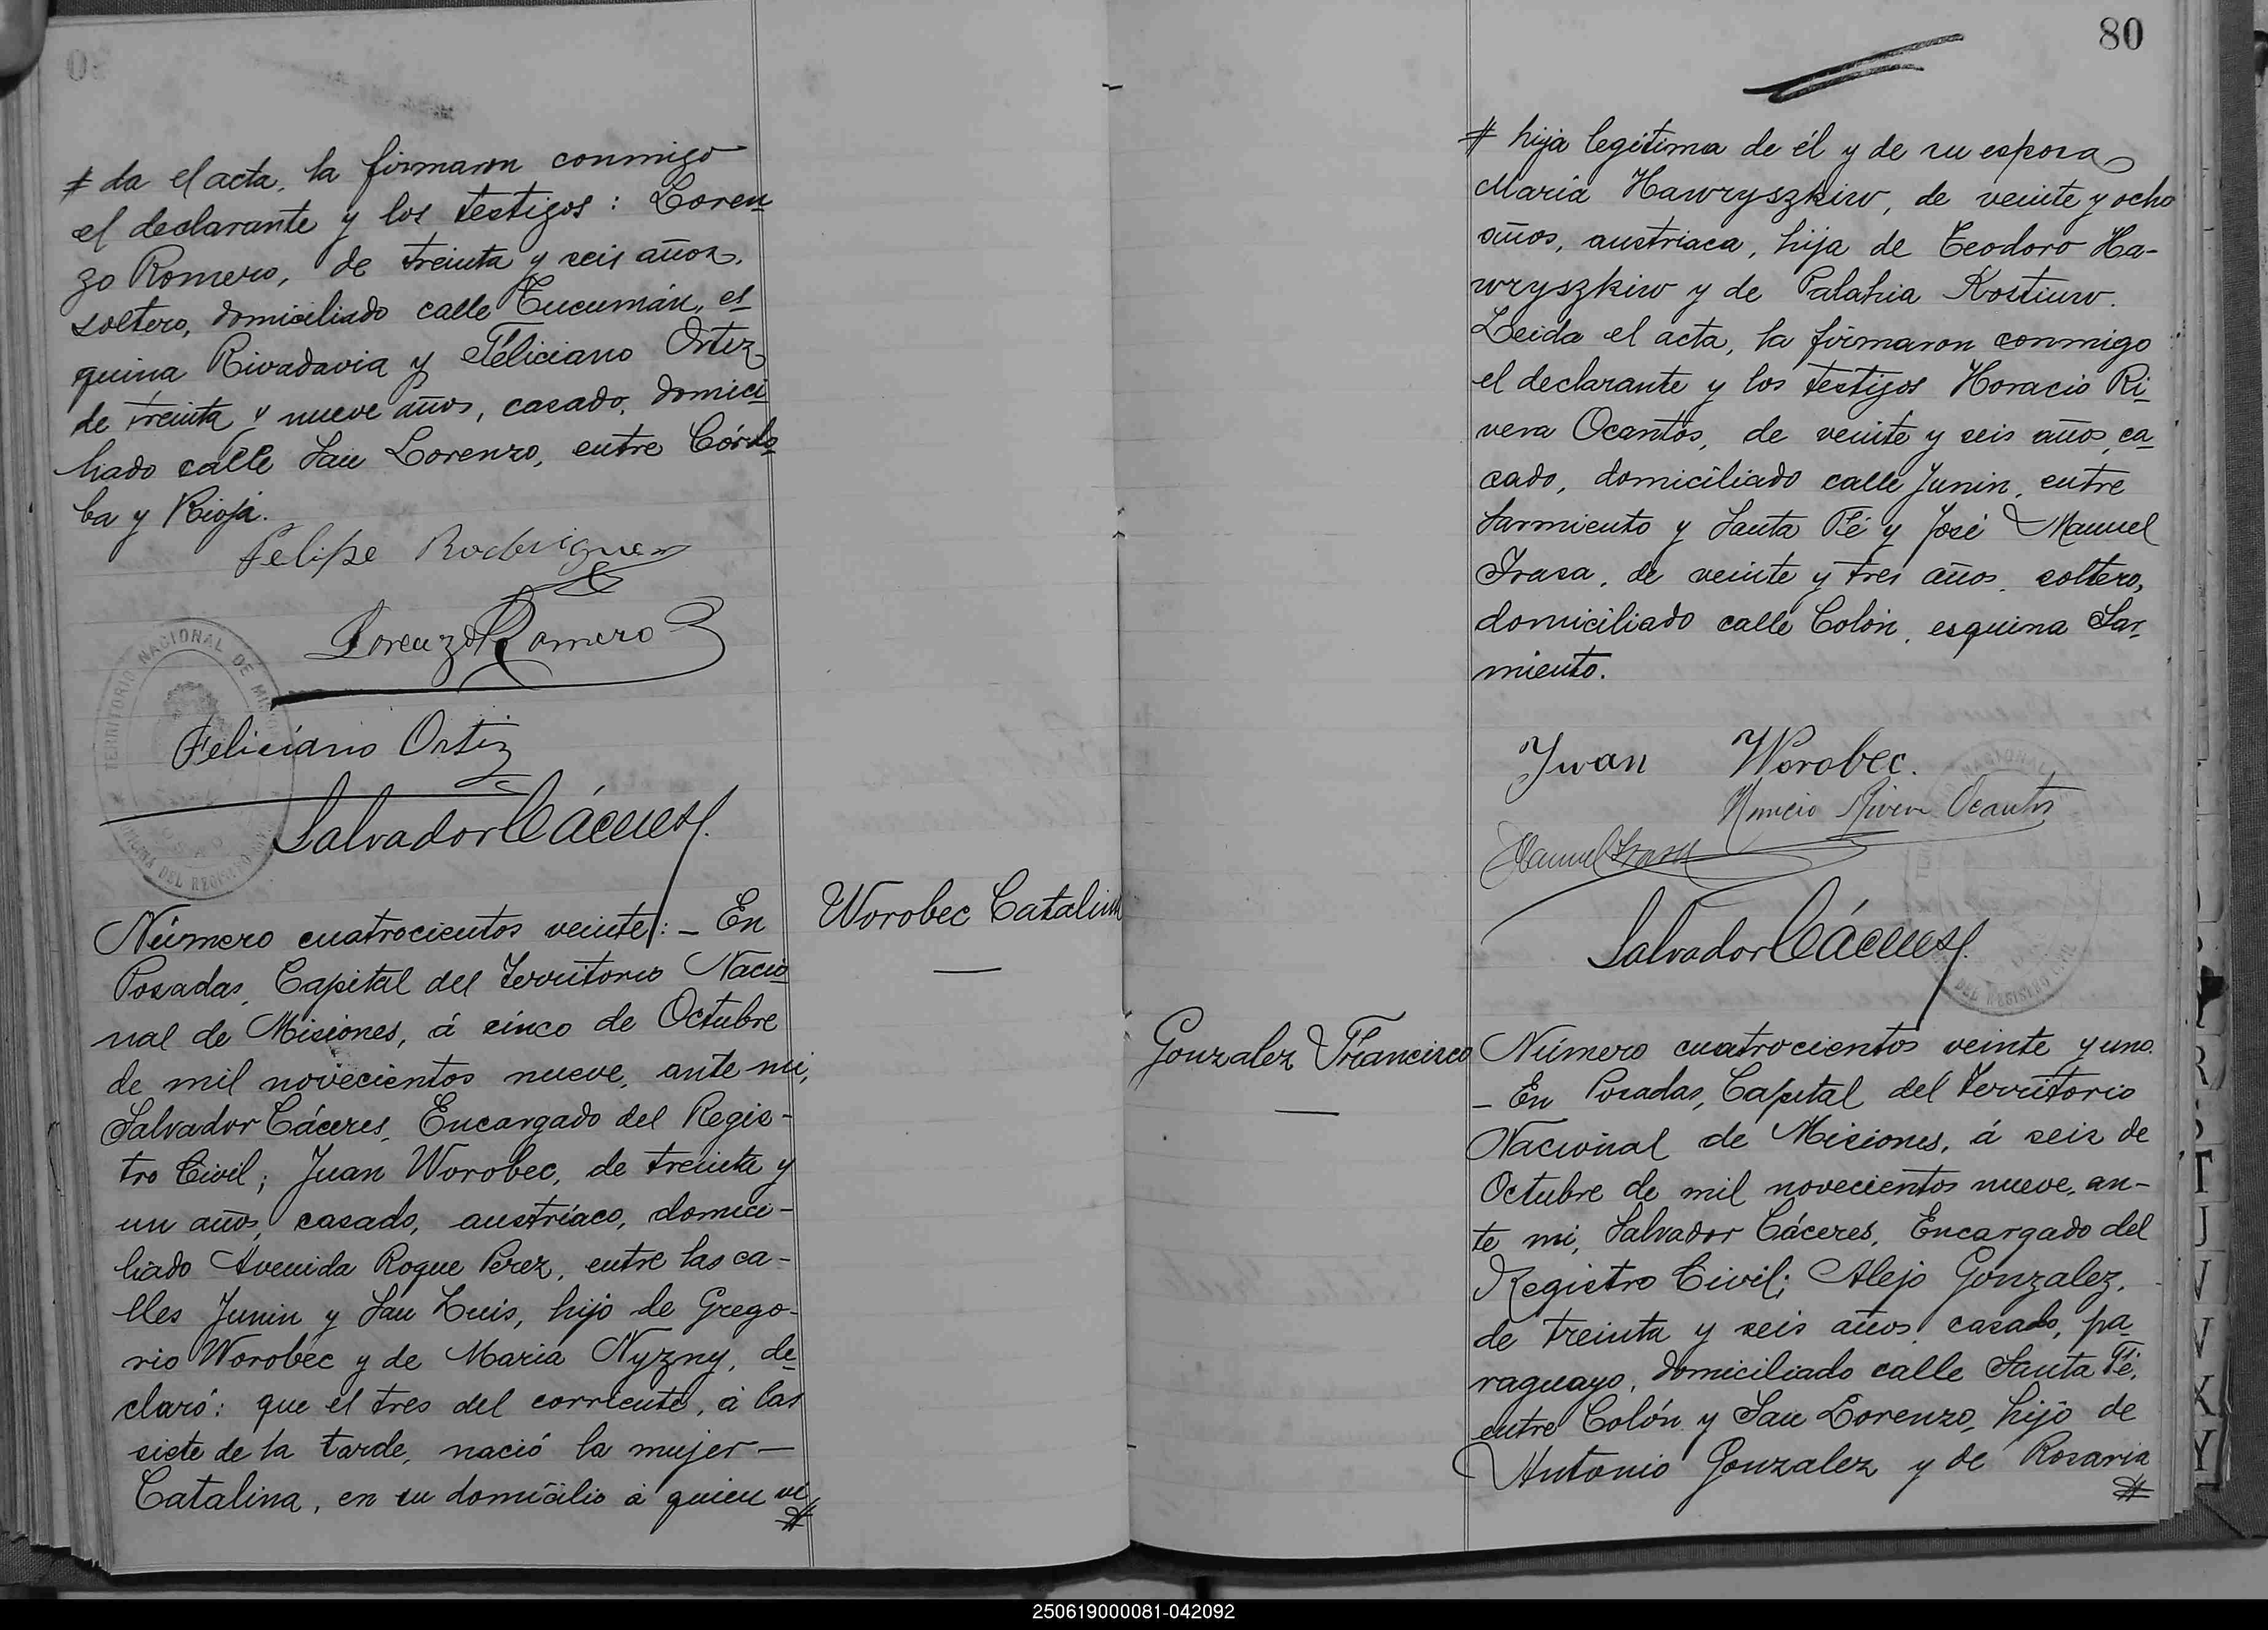 # da el acta, la firmaron conmigo
el declarante y los testigos: Loren
zo Romero, de treinta y seis años,
soltero, domiciliado calle Tucumán, es
quina Rivadavia y Feliciano Ortiz
de treinta y nueve años, casado, domici
liado calle San Lorenzo, entre Córdo
ba y Rioja.
Felipe Rodriguez
Lorenzo Romero
Feliciano Ortiz
Salvador Cáceres
TERRITORIO NACIONAL DE
DEL REGISTRO
Número cuatrocientos veinte: - En
Posadas, Capital del Territorio Nacio
nal de Misiones, á cinco de Octubre
de mil novecientos nueve, ante mi,
Salvador Cáceres, Encargado del Regis-
tro Civil; Juan Worobec, de treinta y
un años, casado, austríaco, domici-
liado Avenida Roque Perez, entre las ca-
lles Junin y San Luis, hijo de Grego-
rio Worobec y de Maria Nyzny, de
claró: que el tres del corriente, á las
siete de la tarde, nació la mujer —
Catalina, en su domicilio á quien ví
#
Worobec Catalina
80
# hija legítima de él y de su esposa
Maria Hawryszkiw, de veinte y ocho
años, austriaca, hija de Teodoro Ha-
wryszkiw y de Palahia Kostiuw.
Leida el acta, la firmaron conmigo
el declarante y los testigos Horacio Ri
vera Ocantos, de veinte y seis años, ca
sado, domiciliado calle Junin, entre
Sarmiento y Santa Fé y José Manuel
Irasa, de veinte y tres años, soltero,
domiciliado calle Colón, esquina Sar
miento.
Iwan Worobec.
Horacio Rivera Ocantos
Manuel Irasa
Salvador Cáceres
NACIONAL
DEL REGISTRO CIVIL
Gonzalez Francisco
Número cuatrocientos veinte y uno.
- En Posadas, Capital del Territorio
Nacional de Misiones, á seis de
Octubre de mil novecientos nueve, an-
te mi, Salvador Cáceres, Encargado del
Registro Civil; Alejo Gonzalez,
de treinta y seis años, casado, pa
raguayo, domiciliado calle Santa Fé,
entre Colón y San Lorenzo, hijo de
Antonio Gonzalez y de Rosaria
#
R
S
T
V
X
Y
250619000081-042092